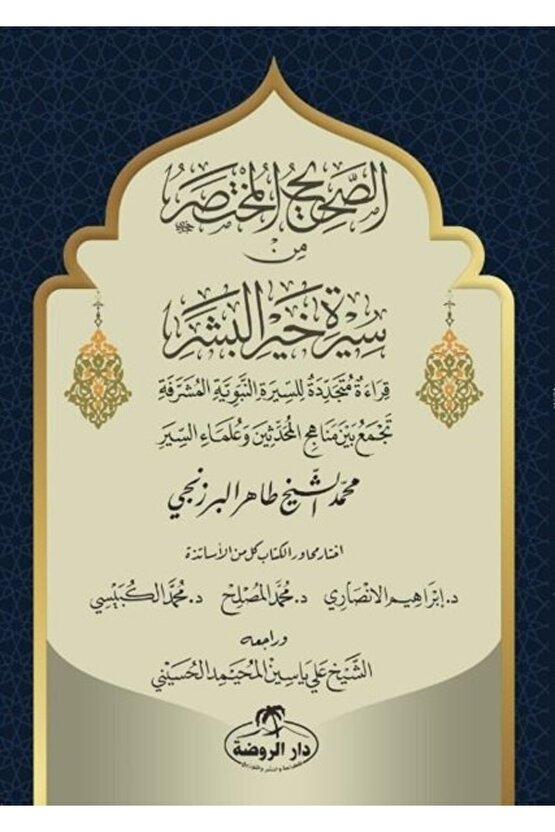 الصَّحِيحُ المُخْتَصَرُ
مِنْ
سِيْرَةِ خَيْرِ البَشَرِ
قِرَاءَةٌ مُتَجَدِّدَةٌ لِلسِّيرَةِ النَّبَوِيَّةِ المُشَرَّفَةِ
تَجْمَعُ بَيْنَ مَنَاهِجِ المُحَدِّثِينَ وَعُلَمَاءِ السِّيَرِ
محمّد الشّيخ طاهر البرزنجي
اختار محاور الكتاب كل من الأساتذة
د. إبْرَاهِيم الانْصَارِي د. مُحَمَّد المُصْلِح د. مُحَمَّد الكُبَيْسِي
وراجعه
الشَّيْخ عَلي يَاسِين المُحَيْمِد الحُسَيْنِي
دار الروضة
للطباعة والنشر والتوزيع